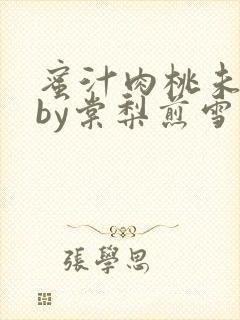 蜜汁肉桃未
by棠梨煎雪
張學思